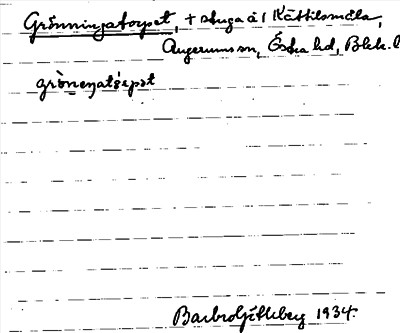 Grönningatorpet, + stuga å 1 Kättilsmåla,
Augerums sn, Östra hd, Blek. l
grònenatårpet
Barbro Gjëllberg 1934.